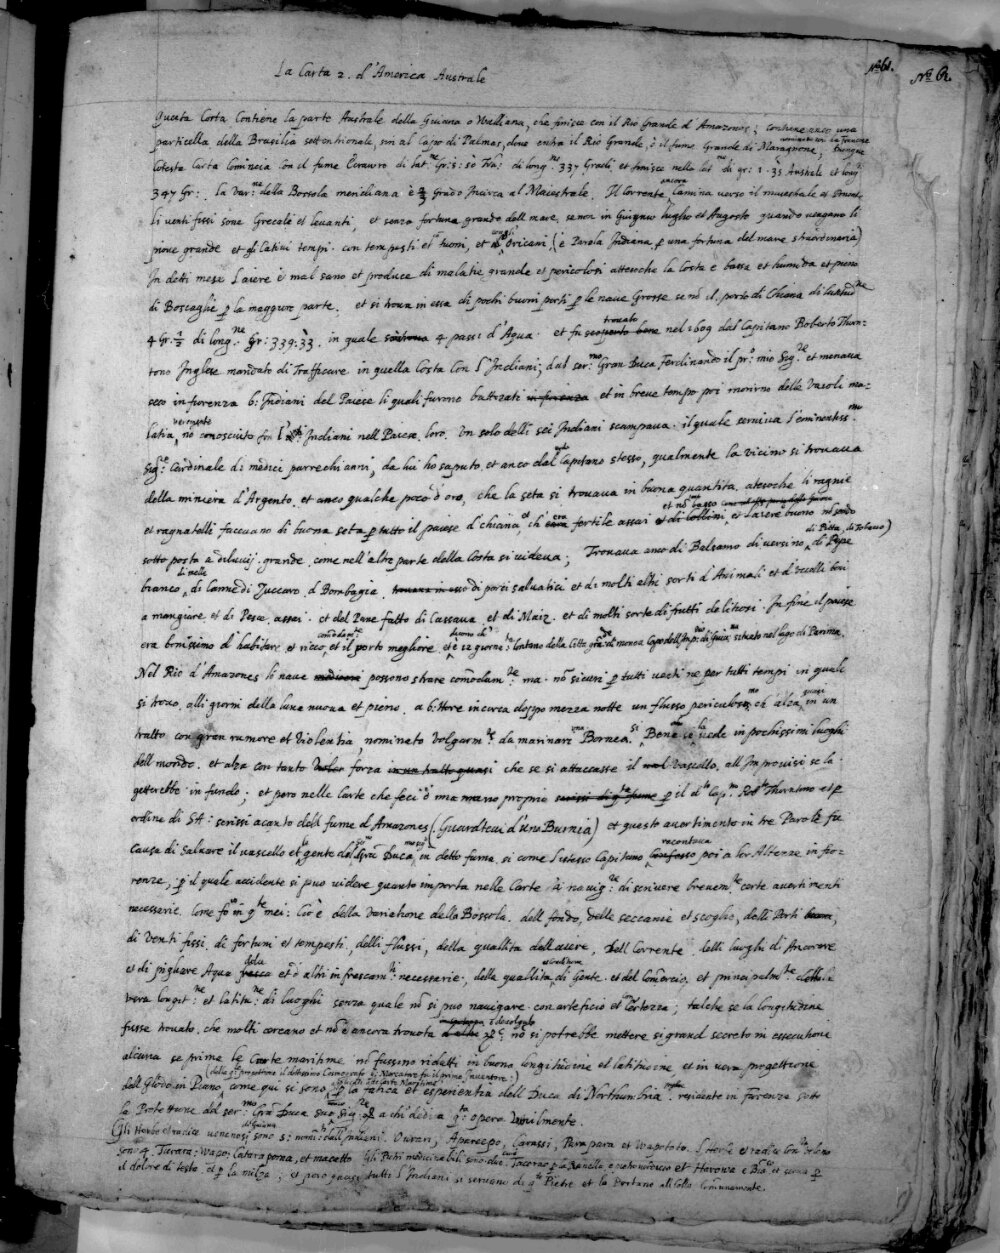 La Carta 2. d'America Australe
No 61. No 62.
Questa Carta Contiene la parte Australe della Guiana o Walliana, che finisce con il Rio Grande d'Amazones; contiene anco una
particella della Brasilia settentrionale, sin al Capo di Palmas, dove entra il Rio Grande, è il fiume Grande di Maragnone;
Cotesta Carta Comincia con il fiume di lat.ne Gr: di long.ne 337 Gradi, et finisce nella lat.ne di gr: 1. 35 Australe et long
347 Gr: la Var:ne della Bossola meridiana è Grado Incirca al Maiestrale. Il Corrente ancora Camina verso il maestrale et
li venti fissi sono Grecale et levanti, et senza fortuna grande dell mare, se non in Giugno luglio et Augosto quando vengano li
piove grande et Cativi tempi. con tempesti et tuoni, et Oricani (è Parola Indiana p una fortuna del mare straordinaria)
In detti mese l'aiere è mal sano et produce di malatie grande et pericolosi attesoche la Costa e bassa et humida et pieno
di Boscaglie p la maggiore parte, et si trova in essa di pochi buoni porti p le nave Grosse se nò il porto di Chiana di latitud.ne
4 Gr. ½ di long.ne Gr: 339:33. in quale 4 passi d'Agua. et fu trovato nel 1609 dal Capitano Roberto Thorn-
tono Inglese mandato di Trafficare in quella Costa con l'Indiani, dal ser:mo Gran Duca Ferdinando il pr:o mio Sig.re et menava
seco in fiorenza 6: Indiani del Paiese li quali furono battezati in fiorenza et in breve tempo poi morirno delle Vaioli ma-
latia, nò conosciuto fra l' Indiani nell Paiese loro. Un solo delli sei Indiani scampava. il quale serviva l'eminentiss:mo
Sig.re Cardinale di medici parrechi anni, da lui ho saputo, et anco dal Capitano stesso, qualmente la vicino si trovava
della miniera d'Argento. et anco qualche poco d'oro, che la seta si trovava in buona quantita, atesoche li ragnie
et ragnatelli facevano di buona seta p tutto il paiese d'chiana, et ch'era fertile assai et di Collini, et l'aiere buono nò
sotto posta a diluvij grande come nell'altre parte della Costa si videva; Trovava anco di Balsamo di verzino, di Pitta, di Tobacco) di Pepe
bianco, di melle di Canne di Zuccaro, d Bombagia trovava in esso di porci salvatici et di molti altri sorti d'Animali et d'Vccelli boni
a mangiare, et di Pesce assai. et del Pane fatto di Cassava et di Maiz. et di molti sorte di frutti delitiosi. In fine il paiese
era bonissimo d'habitare et ricco, et il porto megliore et è 12 giorni lontano della Citta grã di manoa Capo dell'Imp:o di Guia:na situato nel lago di Parima.
Nel Rio d'Amazones li nave possono strare comodam:te ma nò sicuri p tutti venti ne per tutti tempi in quale
si trova, alli giorni della luna nuova et piena. a 6: Hore incirca doppo mezza notte un flusso periculoss:mo ch'alza in un
tratto con gran rumore et violentia, nominato Volgarm:te da marinari una Bornea. Si Bene la vede in pochissimi luoghi
dell mondo. et alza con tanta forza in un tratto quasi che se si attaccasse il Vascello, all'Improviso se la
getterebbe in fundo; et però nelle Carte che feci d ma mano proprio scrissi p il d:to Cap:no Rob:to Thorntono et p
ordine di SA: scrissi acanto dell fiume d'Amazones (Guardatevi d'una Burnia) et questo avertimento in tre Parole fu
causa di Salvare il vascello et gente del Grã Duca, in detto fiume. si come l'istesso Capitano raccontava poi a lor Altezze in fio-
renza; p il quale accidente si puo videre quanto importa nelle Carte di navig:ne di scrivere brevem:te certe avertimenti
necessarie. Come in q:te mei: Cioè della Variatione della Bossola. dell fondo, delle seccanie et scoglie, delli Porti,
di Venti fissi, di fortuni et tempesti, delli flussi, della quallita dell'aiere, Dell Corrente delli luoghi di Ancorare
et di pigliare Aqua et d'altri in frescam:ti necessarie; della quallita di Gente. et del Comercio, et principalm:te della
vera longit:ne et latitu:ne di luoghi senza quale nò si puo navigare con arteficio et Certezza; talche se la longitudine
fusse trovato, che molti cercano et nò è ancora trovato nò si potrebbe mettere si grand secreto in essecutione
alcuna se prime le Carte maritime nò fussino ridutti in buona longitudine et latitudine et in vera progettione
dell Globo in Piano, come qui si sono p la fatica et esperientza dell Duca di Northumbria residente in fiorenza sotto
la Protettione del ser:mo Grã Duca suo Sig:re a chi dedica q:ta opera Vmilmente.
Gli Herbe et radice venenosi di Guiana sono 5: nom:ti dall'Indiani. Ourari, Apareepo, Carassi, Parapara et Wapototo. l'Herbe et radice Contra veleno
sono 4. Tarara; Wapo; Catara porna, et macetto. Gli Petri medicinabili sono due Tacorao p la Ranella, et Havorza è Bia:co et serva p
il dolore di testo et p la milza; et però quasi tutti l'Indiani si servano di q:te Pietre et la Portano al Collo Comunamente.